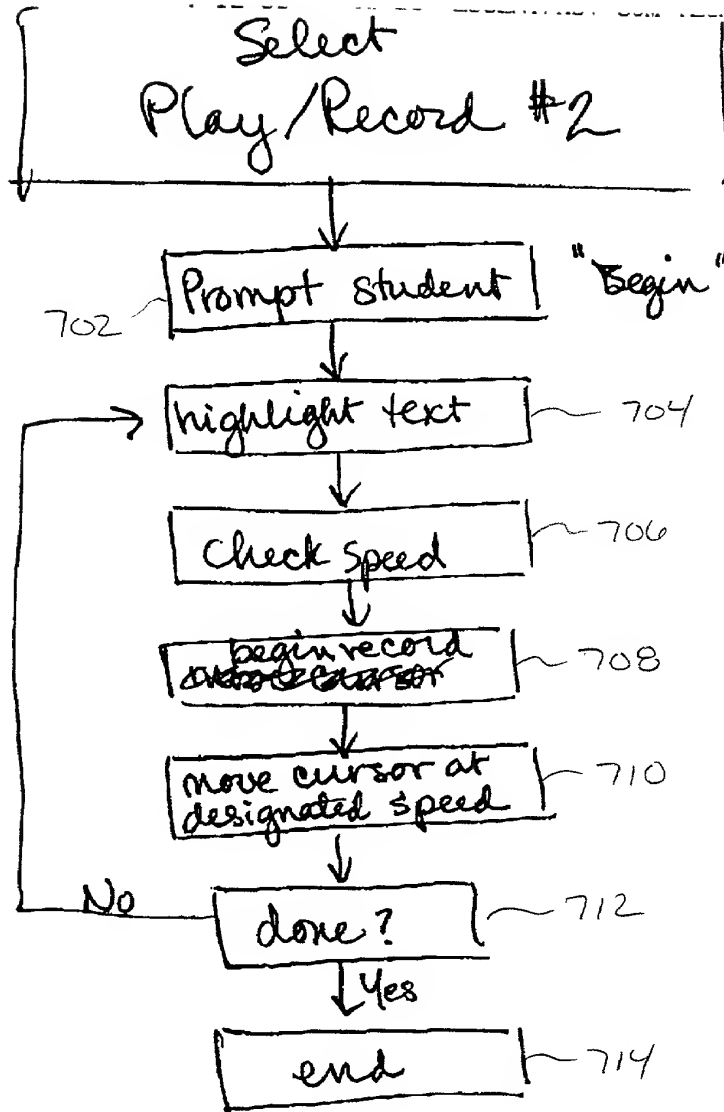 Select
Play/Record #2
Prompt student
"Begin"
702
highlight text
704
Check speed
706
begin record
708
move cursor at
designated speed
710
No
done?
712
Yes
end
714